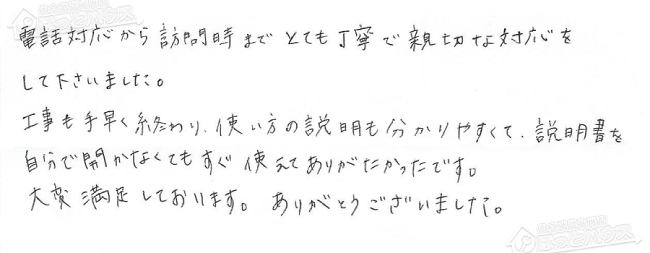 電話対応から訪問時までとても丁寧で親切な対応を
して下さいました。
工事も手早く終わり、使い方の説明も分かりやすくて、説明書を
自分で開かなくてもすぐ使えてありがたかったです。
大変満足しております。ありがとうございました。